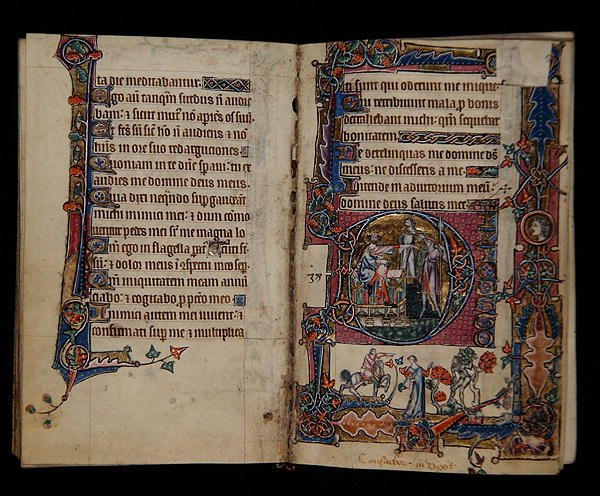 ta die meditabantur.
Ego aū tanqm̄ surdus n̄ audie
bam: & sicut mutꝰ nō apiēs os suū.
Et fc̄s sū sic̄ hō n̄ audiens & nō
hn̄s in ore suo redargutiones.
Quoniam in te dn̄e spaui: tu ex
audies me domine deus meus.
Quia dixi neqn̄do supgaudeant
michi inimici mei: & dum cōmo
uentur pedes mei sr̄ me magna lo
Qm̄ ego in flagella pat9 cuti st̄
sū: & dolor meus ī cspectu meo sep
Qm̄ iniquitatem meam annū
ciabo: & cogitabo p pccō meo
Inimici autem mei uiuent: &
confirmati sūt sup me & multiplica
ti sunt qui oderunt me inique
Qui retribuunt mala p bonis
detrahebant michi: qm̄ sequebar
bonitatem.
Ne derelinquas me domine ds̄
meus: ne discesseris a me
Intende in adiutorium meū:
domine deus salutis mee
38